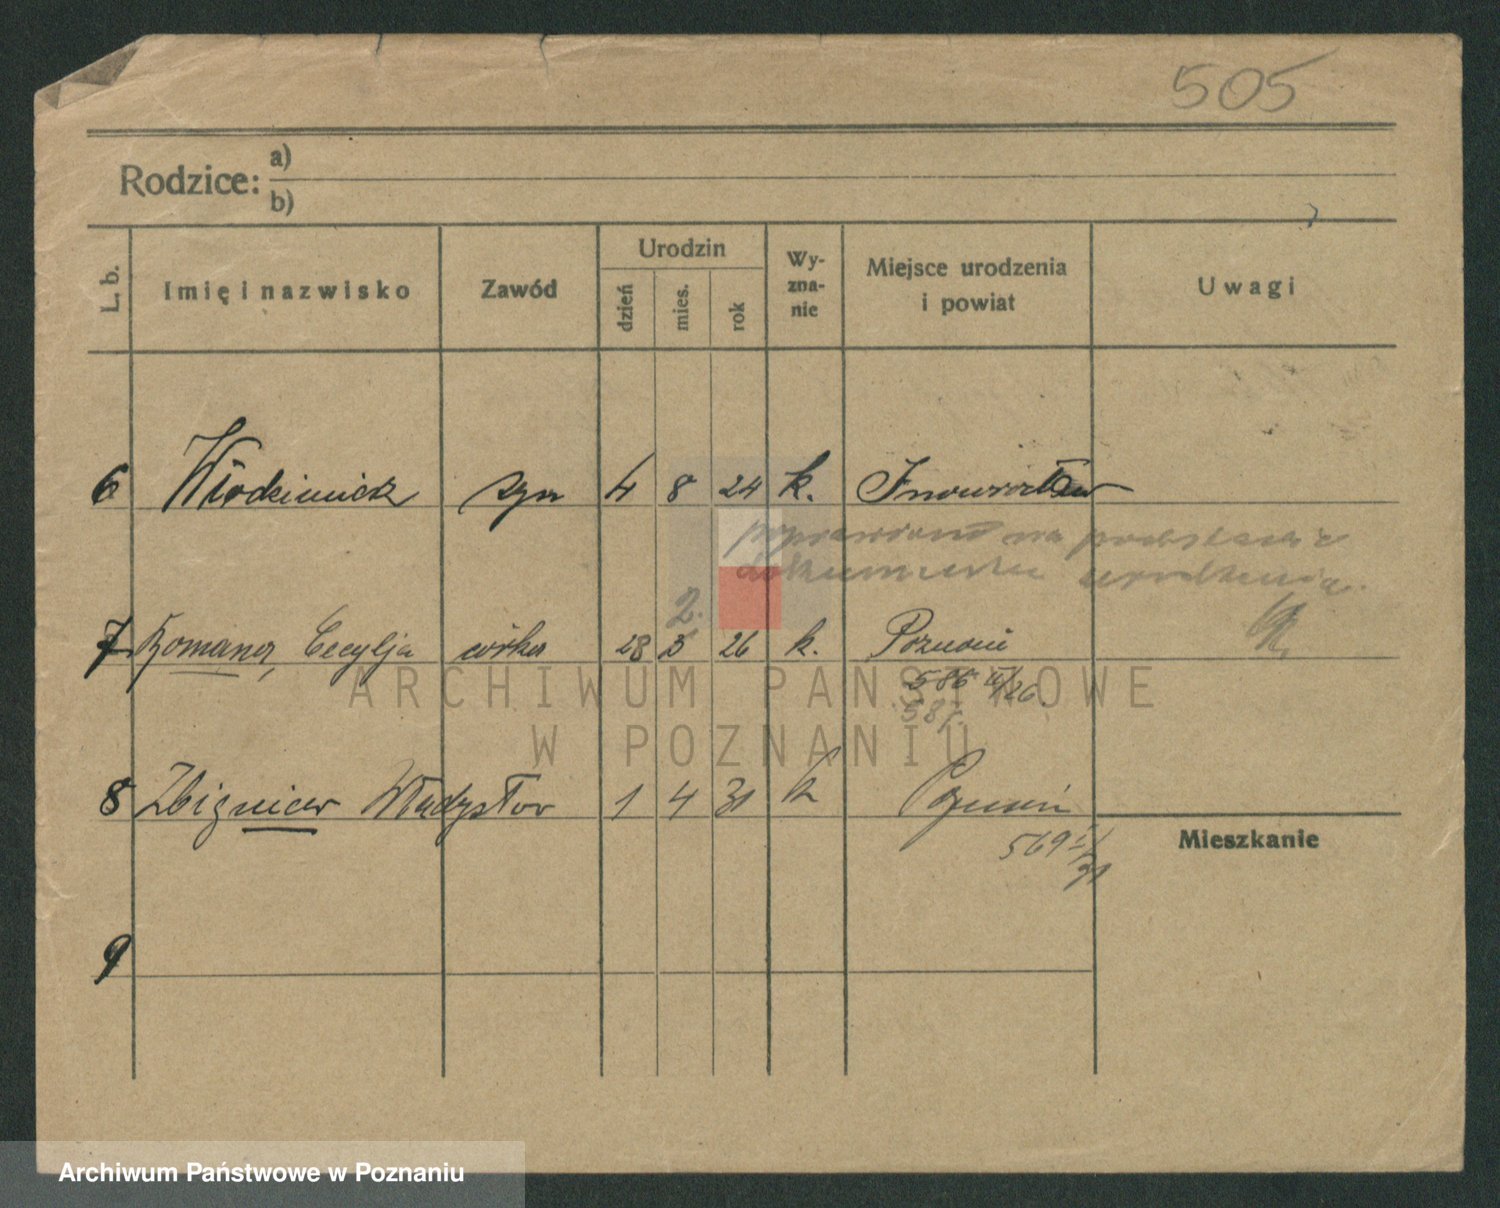 505
Rodzice: a)
b)
L. b. Imię i nazwisko Zawód Urodzin dzień mies. rok Wy-zna-nie Miejsce urodzenia i powiat Uwagi
6 Włodzimierz syn 4 8 24 k. Inowrocław
poprawiono na podstawie
dokumentu urodzenia.
2.
7 Romana, Cecylja córka 28 3 26 k. Poznań
586 II/26.
587.
8 Zbigniew Władysław 1 4 31 k Poznań
Mieszkanie
569
9
ARCHIWUM PAŃSTWOWE
W POZNANIU
Archiwum Państwowe w Poznaniu